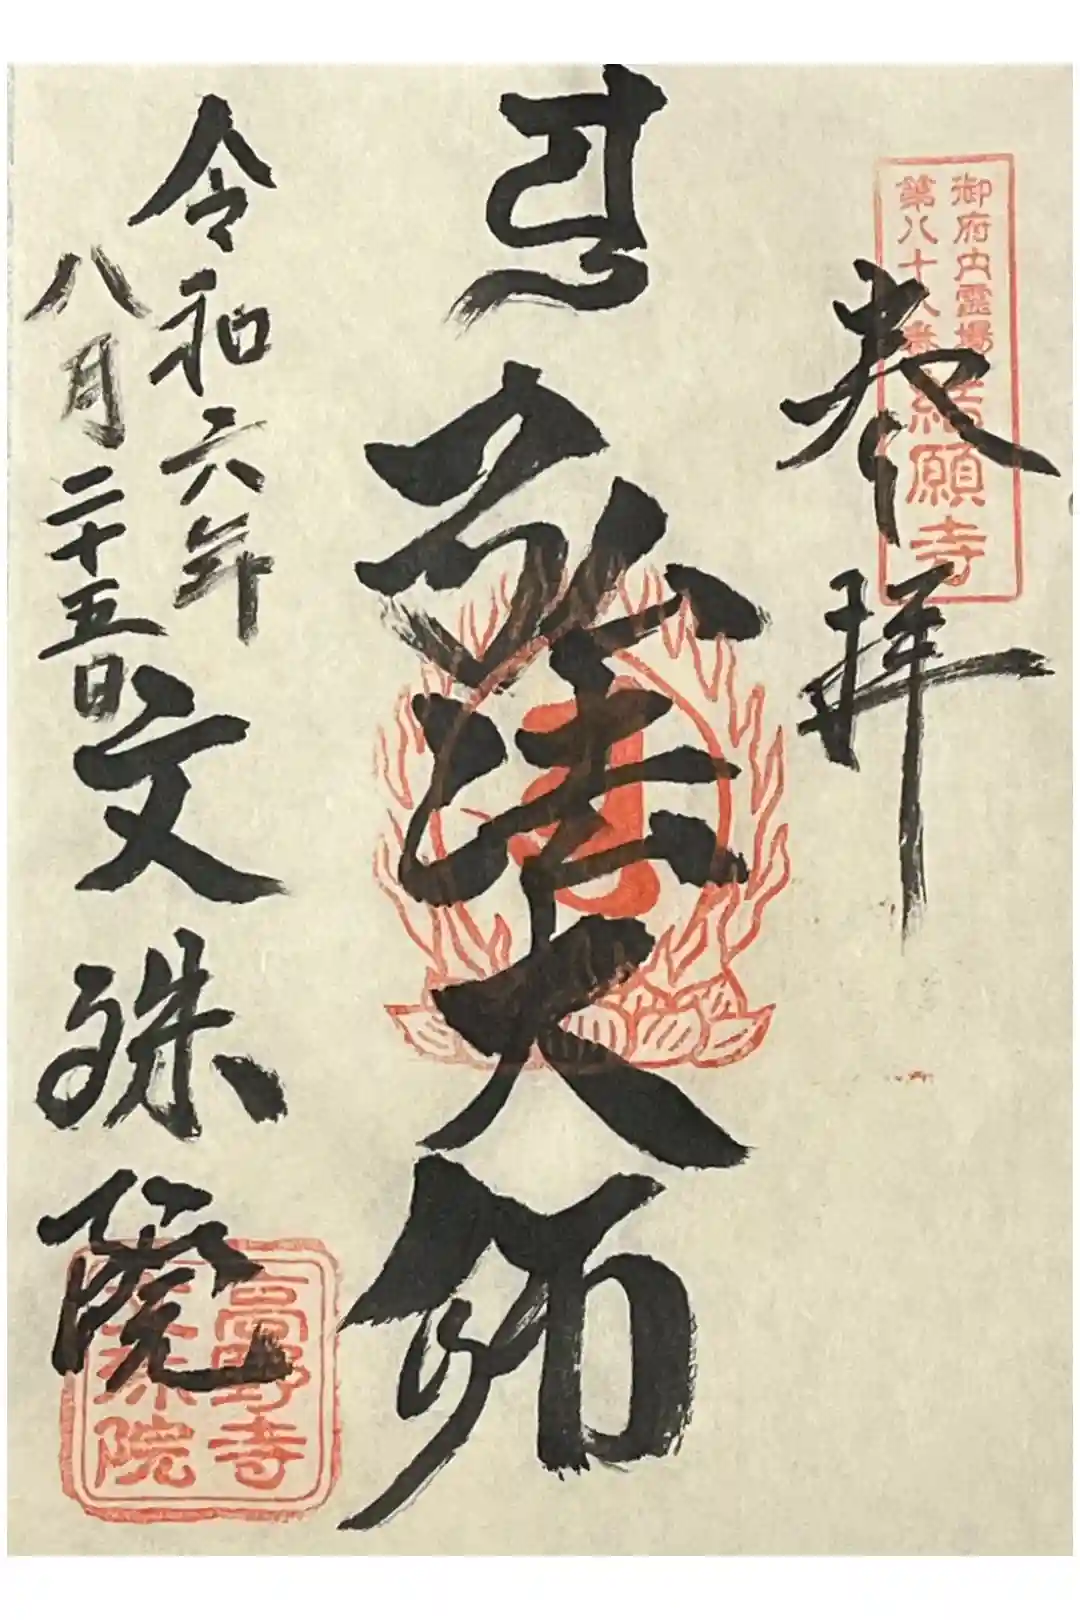 御府内霊場
第八十八番
結願寺
奉拝
弘法大師
令和六年
八月二十五日
文殊院
高野寺
文殊院